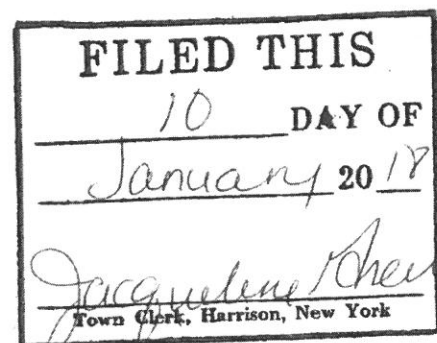 FILED THIS
10 DAY OF
January 20 18
Jacqueline
Town Clerk, Harrison, New York